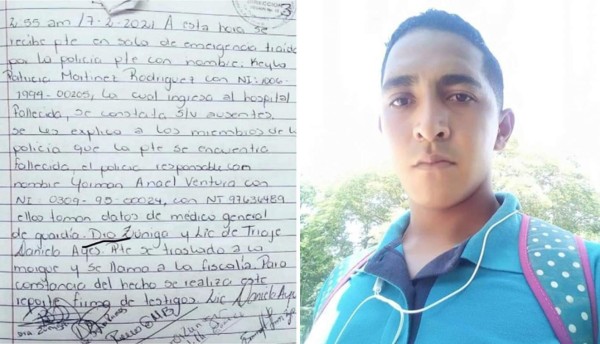 2:55 am / 7-2-2021 A esta hora se
recibe pte en sala de emergencia traida
por la policia pte con nombre: Keyla
Patricia Martinez Rodriguez con NI: 1006-
1994-00205, la cual ingresa al hospital
fallecida, se constata s/v ausentes.
se les explica a los miembros de la
policia que la pte se encuentra
fallecida, el policia responsable con
nombre Yarman Anael Ventura con
NI: 0309-95-00024, con NT 97636489
ellos toman datos de médico general
de guardia Dra Zuniga y Lic de Triaje
Daniela Ages. Pte se traslada a la
morgue y se llama a la fiscalia. Para
constancia del hecho se realiza este
reporte firma de testigos. Lic Daniela
3